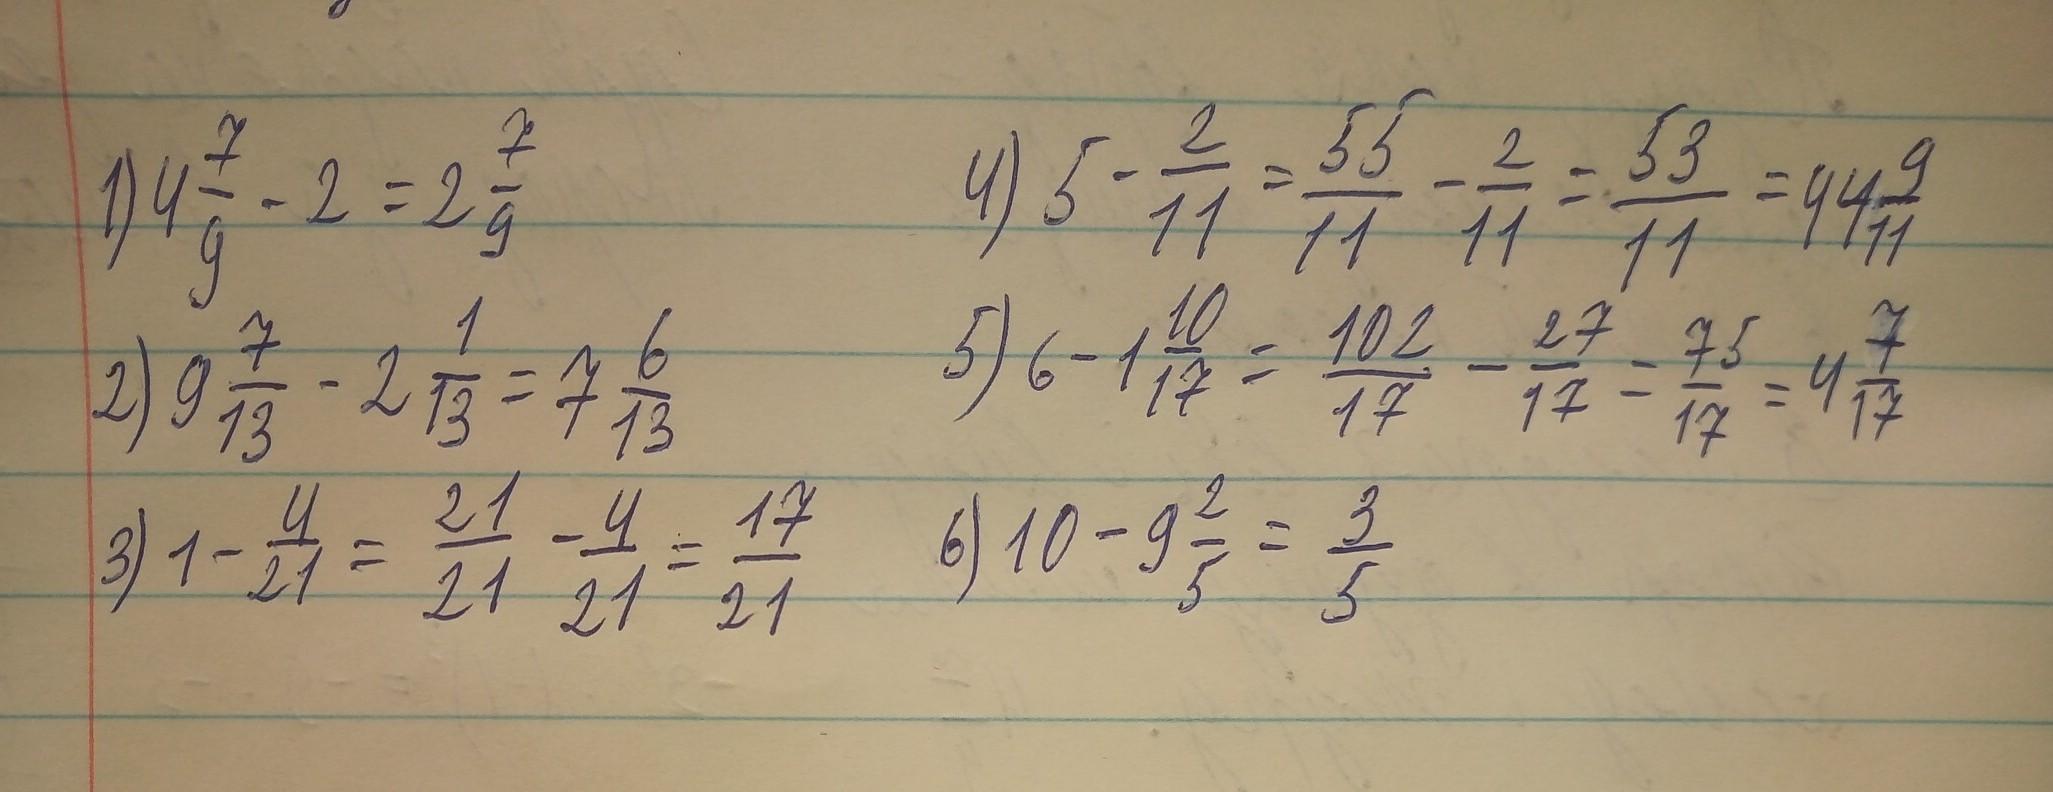 1) 4 7/9 - 2 = 2 7/9
2) 9 7/13 - 2 1/13 = 7 6/13
3) 1 - 4/21 = 21/21 - 4/21 = 17/21
4) 5 - 2/11 = 55/11 - 2/11 = 53/11 = 44 9/11
5) 6 - 1 10/17 = 102/17 - 27/17 = 75/17 = 4 7/17
6) 10 - 9 2/5 = 3/5